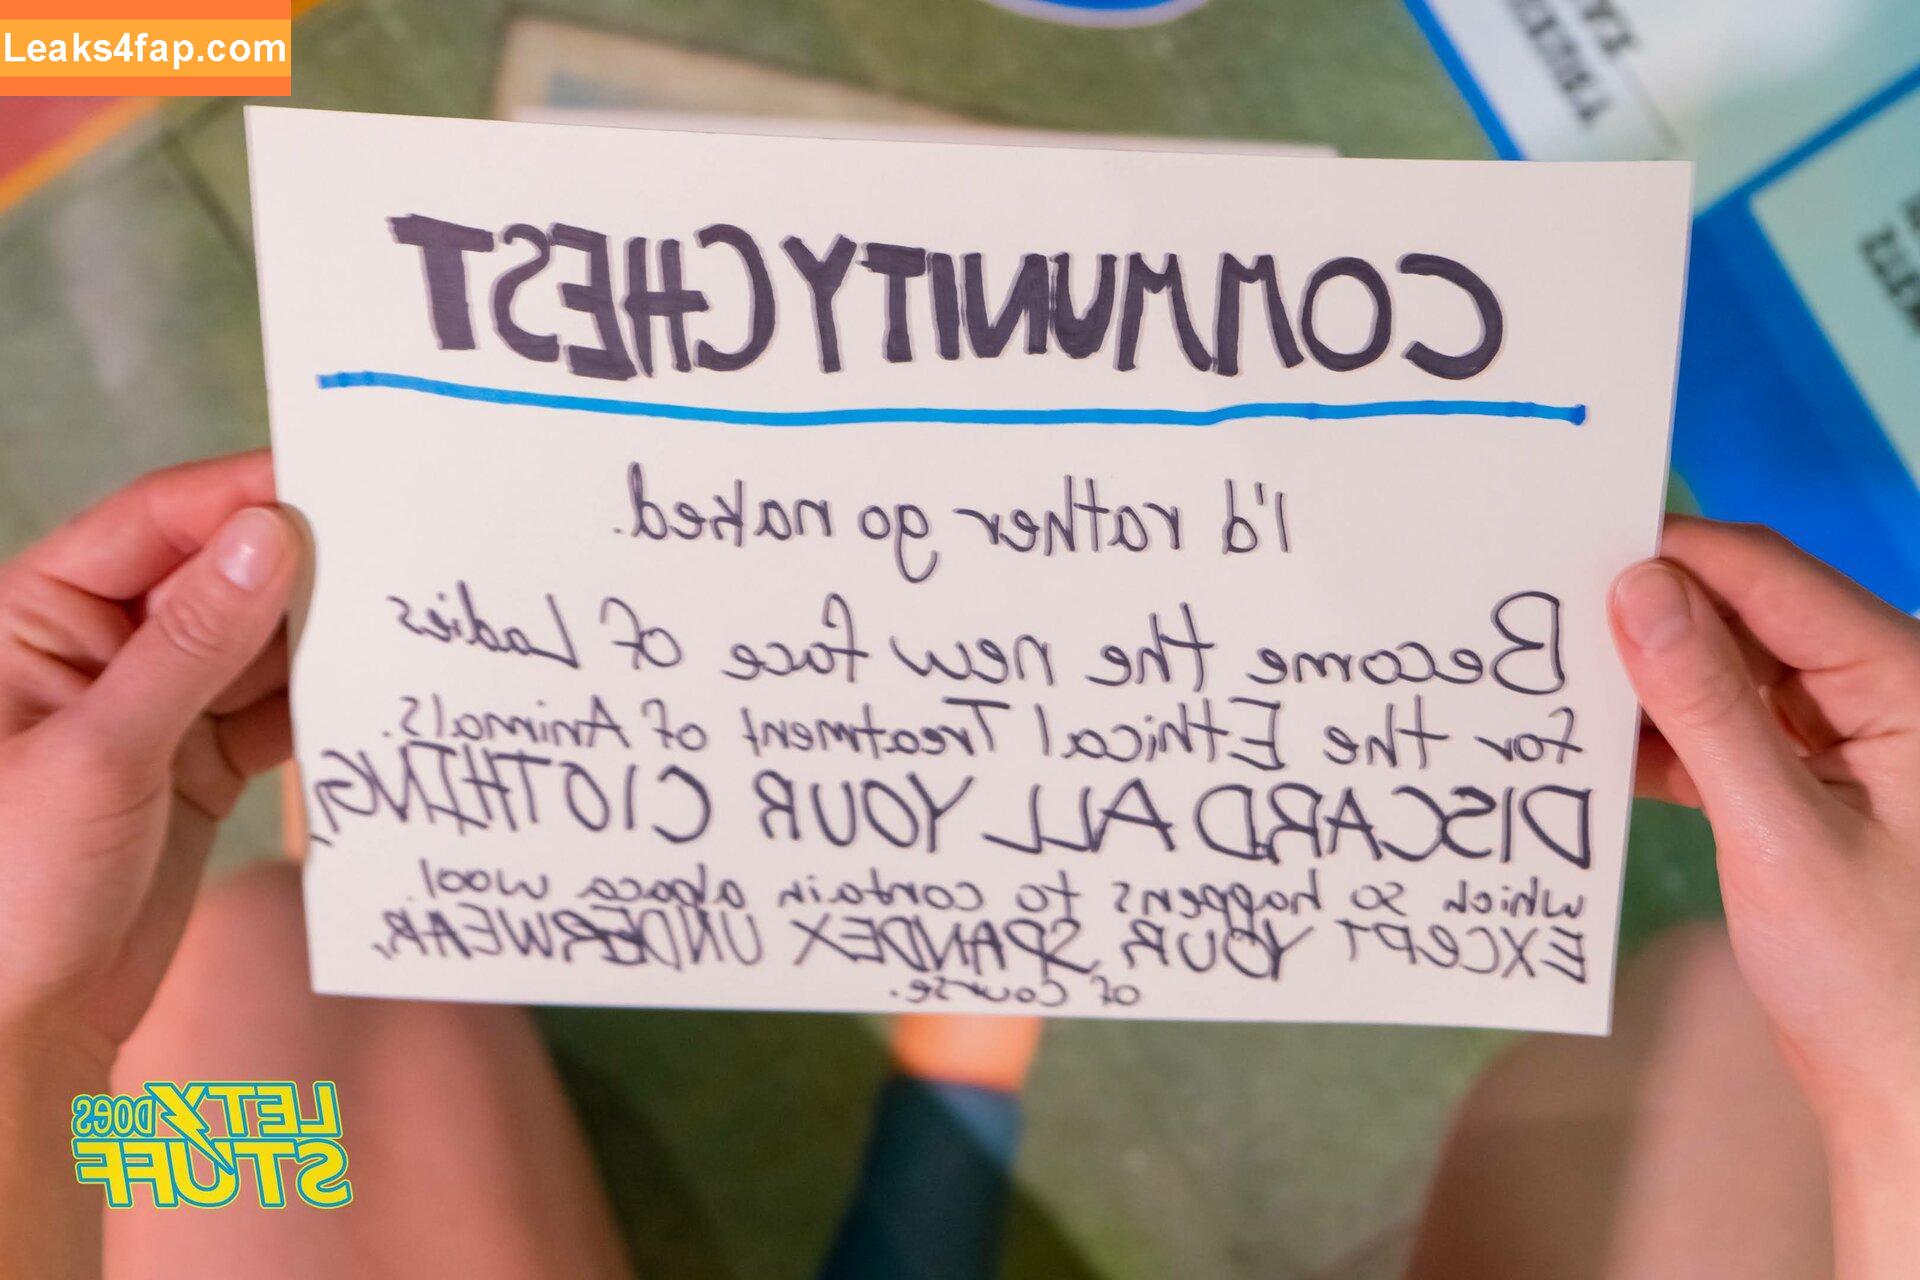 Leaks4fap.com
COMMUNITY CHEST
I'd rather go naked.
Become the new face of Ladies
for the Ethical Treatment of Animals.
DISCARD ALL YOUR ClOTHING,
which so happens to contain alpaca wool.
EXCEPT YOUR SPANDEX UNDERWEAR,
of course.
LETY DOES
STUFF